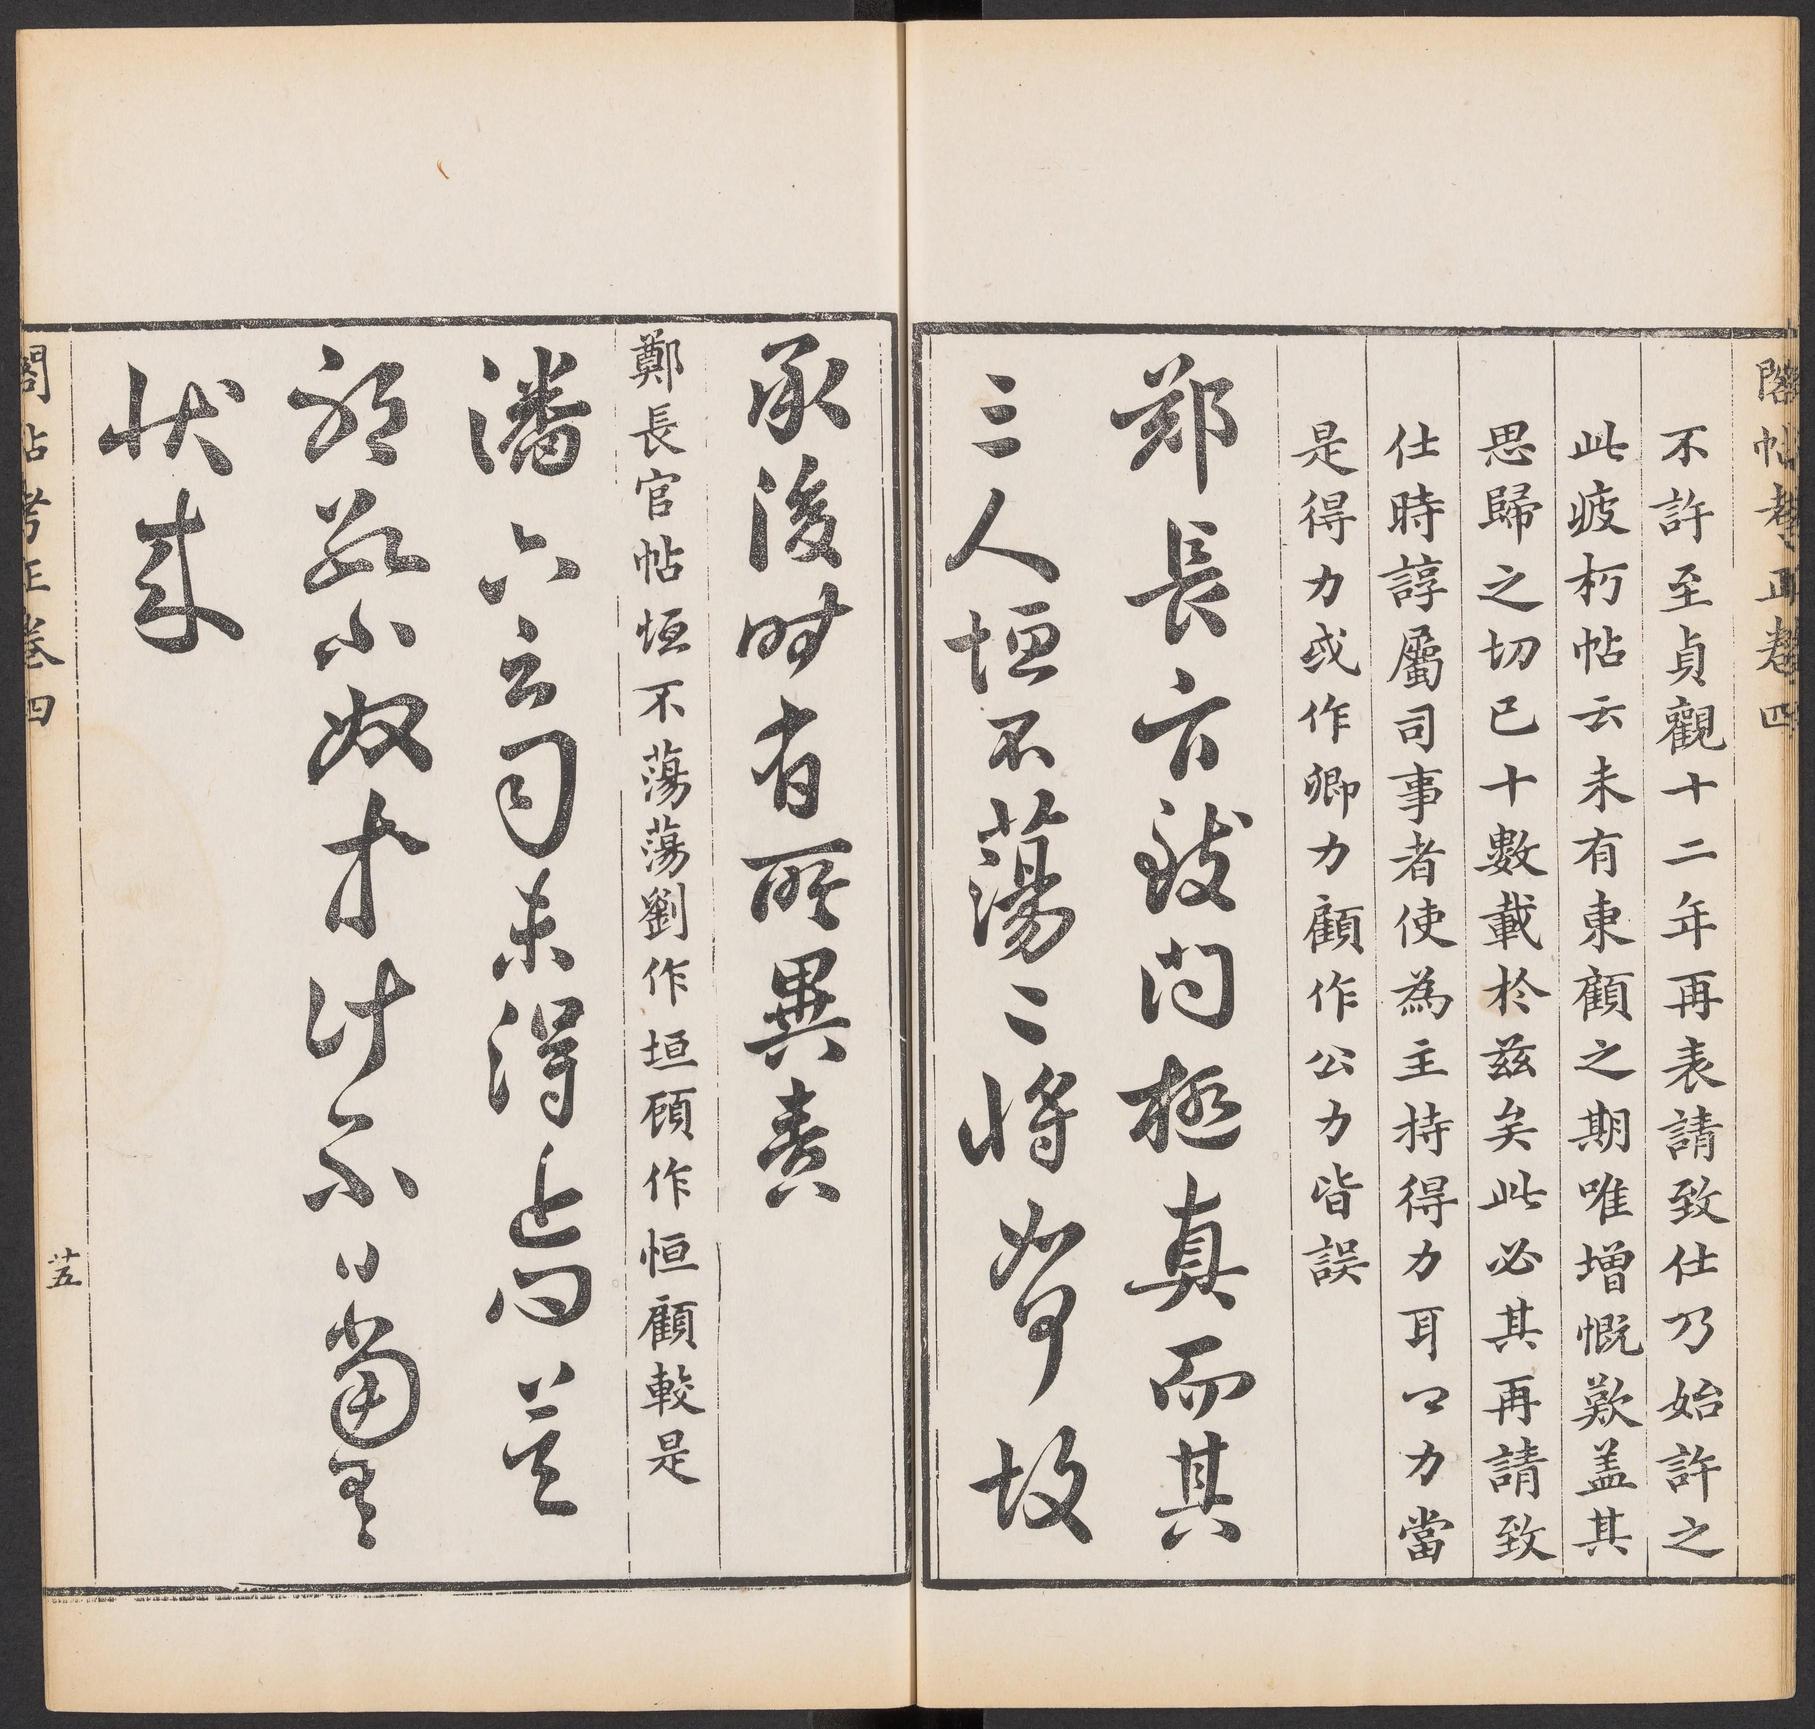 閣帖考正卷四
不許至貞觀十二年再表請致仕乃始許之
此疲朽帖云未有東顧之期唯增慨歎盖其
思歸之切已十數載於兹矣此必其再請致
仕時諄屬司事者使為主持得力耳力當
是得力或作卿力顧作公力皆誤
鄭長官致問極真而其
三人恒不蕩〻將如何故
承後時有所異責
鄭長官帖恒不蕩蕩劉作垣顧作恒顧較是
潘六云司未得近問莫
邪數小奴等計不日當有
狀來
閣帖考正卷四
廿五